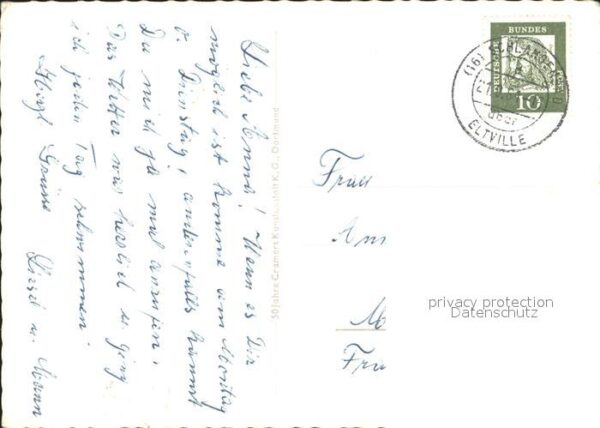 Liebe Anna! Wenn es Dir
möglich ist komme am Montag
o. Dienstag, andernfalls kannst
Du mich ja mal anrufen.
Das Wetter war herrlich u. ging
ich jeden Tag schwimmen.
Herzl. Grüsse
u. Mann
50 Jahre Cramers Kunstanstalt K.G., Dortmund
DEUTSCHE
BUNDES
10
(16)
ELTVILLE
Frau
privacy protection
Datenschutz